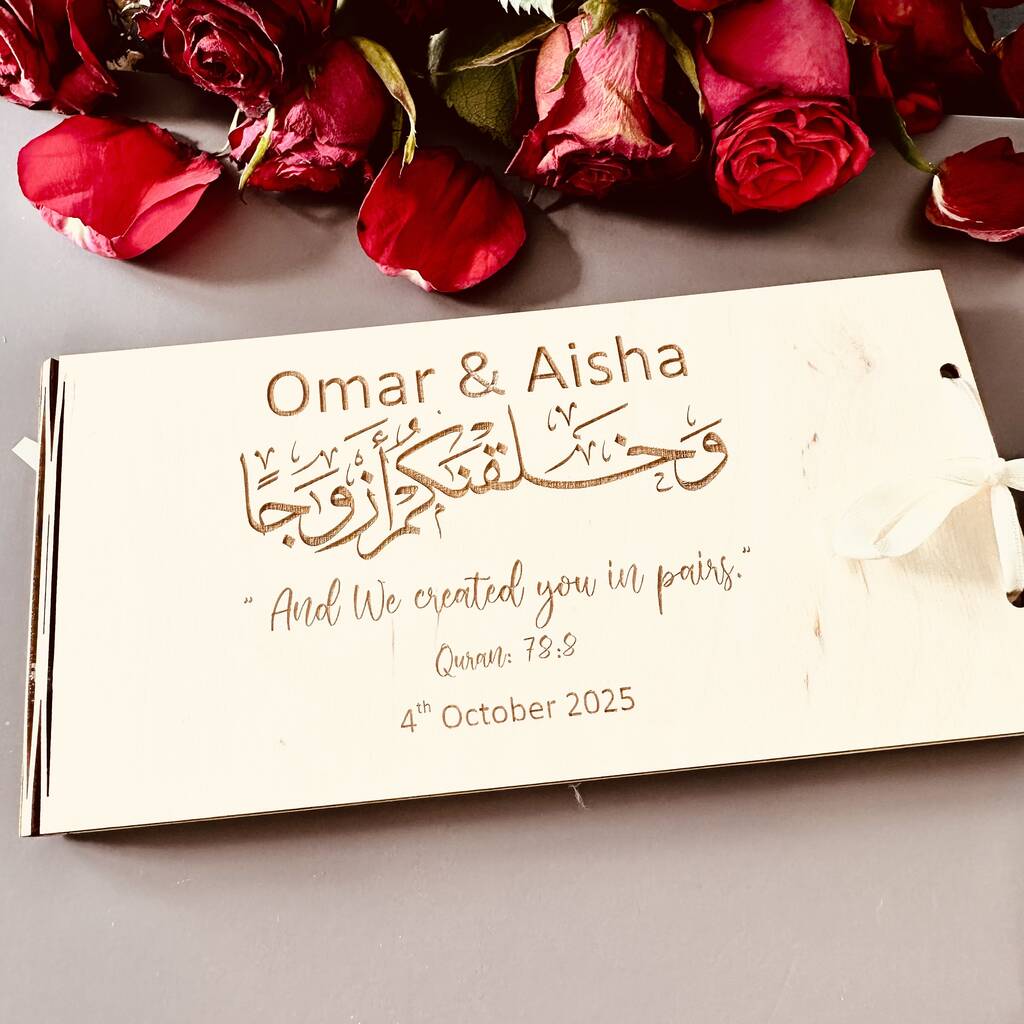 Omar & Aisha
وَخَلَقْنَٰكُمْ أَزْوَٰجًا
" And We created you in pairs."
Quran: 78:8
4th October 2025